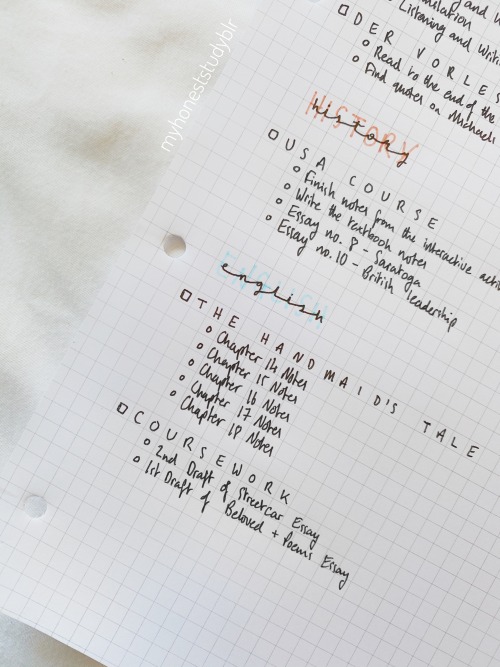 and
Translation
Listening and Writi
DER VORLES
Read to the end of the
Find quotes on Michaeli
HISTORY
history
USA COURSE
Finish notes from the interactive acti
Write the textbook notes
Essay no. 8 - Saratoga
Essay no. 10 - British leadership
ENGLISH
english
THE HANDMAID'S TALE
Chapter 14 Notes
Chapter 15 Notes
Chapter 16 Notes
Chapter 17 Notes
Chapter 18 Notes
COURSEWORK
2nd Draft of Streetcar Essay
1st Draft of Beloved + Poems Essay
myhoneststudyblr